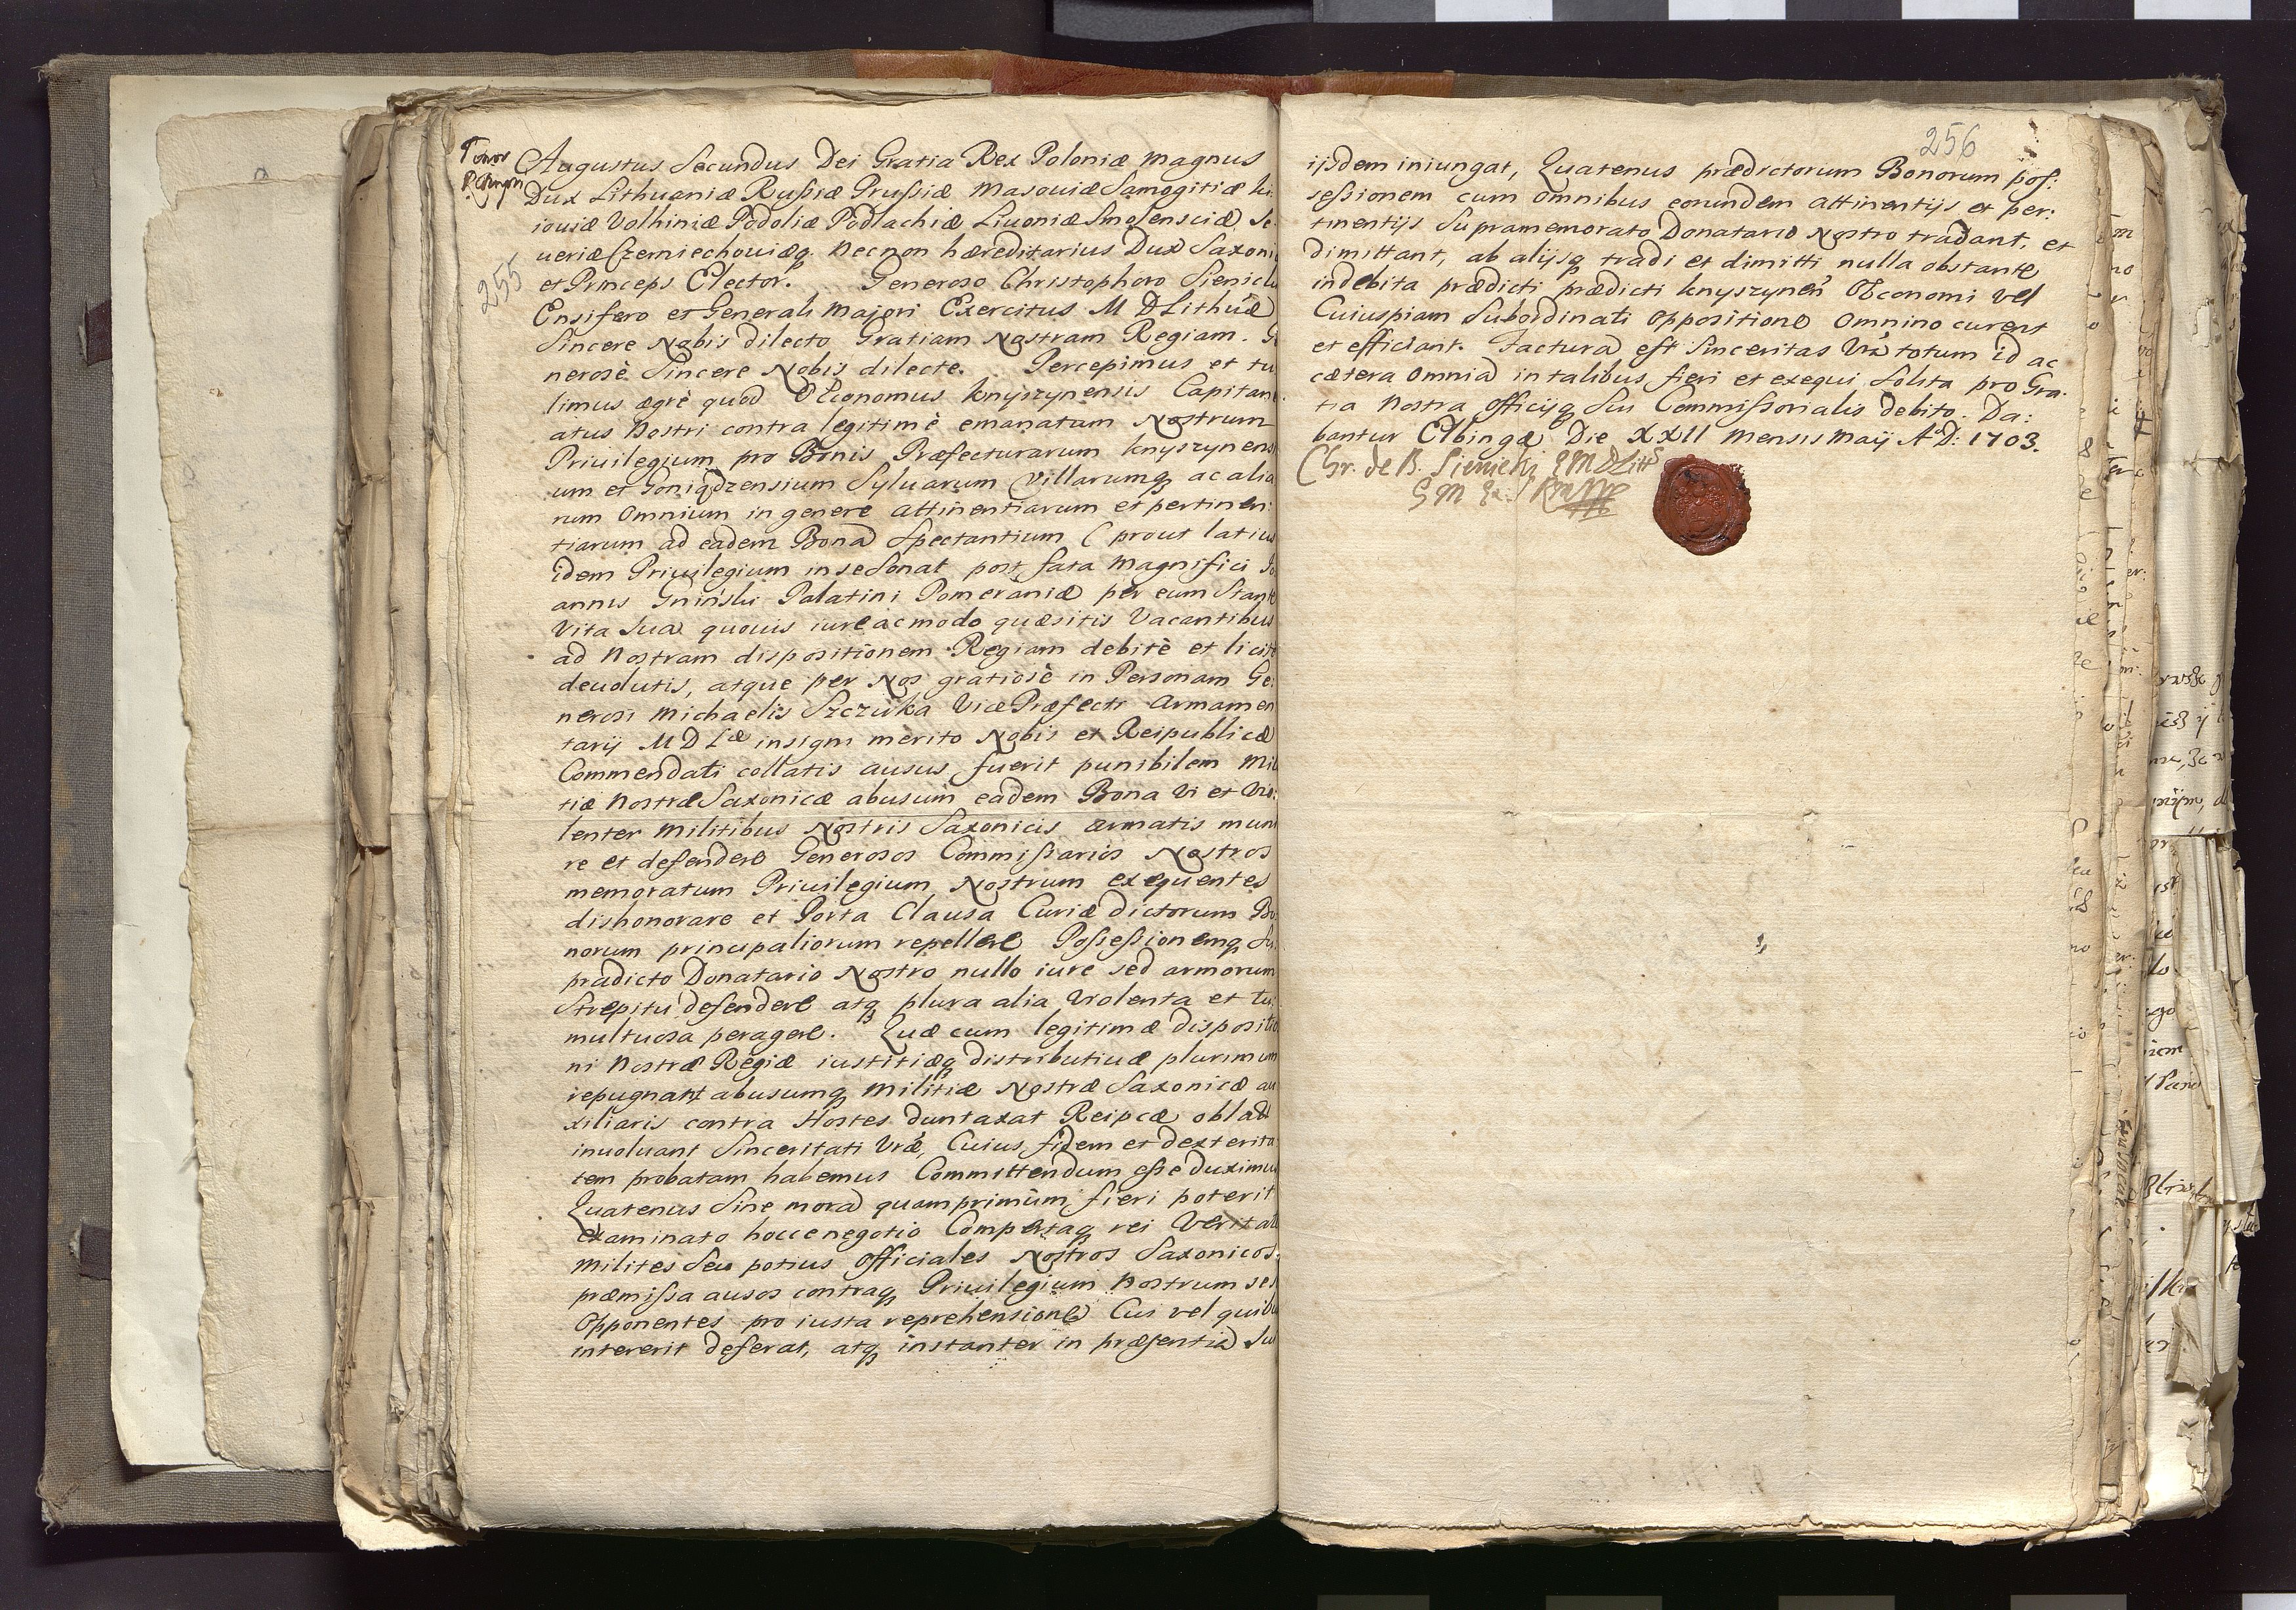 255
Augustus Secundus Dei Gratia Rex Poloniæ Magnus
Dux Lithuaniæ Russiæ Prussiæ Masouiæ Samogitiæ Ki
iouiæ Volhiniæ Podoliæ Podlachiæ Liuoniæ Smolensciæ Se
ueriæ Czerniechouiæq. Necnon hæreditarius Dux Saxoni
et Princeps Elector. Generoso Christophoro Sienick
Ensifero et Generali Majori Exercitus M D Lithuæ
Sincere Nobis dilecto Gratiam Nostram Regiam. G
nerosè Sincere Nobis dilecte. Percepimus et tu
limus ægrè quod Oeconomus Knyszynensis Capitane
atus Nostri contra legitimè emanatum Nostrum
Priuilegium pro Bonis Præfecturarum Knyszynensi
um et Goniądzensium Syluarum Villarumq ac alia
rum Omnium in genere attinentiarum et pertinen:
tiarum ad eadem Bona Spectantium ( prout latius
idem Priuilegium in se Sonat post fata Magnifici Jo
annis Gniński Palatini Pomeraniæ per eum Stante
Vita Sua quouis iure ac modo quæsitis Vacantibus
ad Nostram dispositionem Regiam debitè et licitè
deuolutis, atque per Nos gratiosè in Personam Ge:
nerosi Michaelis Szczuka Vice Præfecti Armamen
tarij M D Læ insigni merito Nobis et Reipublicæ
Commendati collatis ausus fuerit punibilem Mili
tiæ Nostræ Saxonicæ abusum eadem Bona Vi et Vio:
lenter Militibus Nostris Saxonicis armatis muni
re et defendere Generosos Commissarios Nostros
memoratum Priuilegium Nostrum exequentes
dishonorare et Porta Clausa Curiæ dictorum Bo
norum principaliorum repellere Possessionemq Su
prædicto Donatario Nostro nullo iure sed armorum
Strepitu defendere atq plura alia Violenta et tu:
multuosa peragere. Quæ cum legitimæ dispositio
ni Nostræ Regiæ iustitiæq distributiuæ plurimum
repugnant abusumq Militiæ Nostræ Saxonicæ au
xiliaris contra Hostes duntaxat Reipcæ oblatæ
inuoluant Sinceritati Vræ, Cuius fidem et dexterita
tem probatam habemus Committendum esse duximus
Quatenus Sine mora quamprimùm fieri poterit
examinato hocce negotio Compertaq rei Veritate
Milites Seu potius Officiales Nostros Saxonicos
præmissa ausos contraq Priuilegium Nostrum se
Opponentes pro iusta reprehensione Cui vel quibus
intererit deferat, atq instanter in præsentia Su
256
ijsdem iniungat, Quatenus prædictorum Bonorum pos:
sessionem cum Omnibus eorundem attinentijs et per:
tinentijs Supramemorato Donatario Nostro tradant, et
dimittant, ab alijsq tradi et dimitti nulla obstante
indebita prædicti prædicti Knyszynen Oeconomi vel
Cuiuspiam Subordinati Oppositione Omnino curent
et efficiant. Factura est Sinceritas Vra totum id ac
cætera Omnia in talibus fieri et exequi Solita pro Gra
tia Nostra Officijq Sui Commissorialis debito. Da:
bantur Elbingæ Die XXII Mensis Maij A D: 1703.
Chr. de B. Sienicki E M D Litt